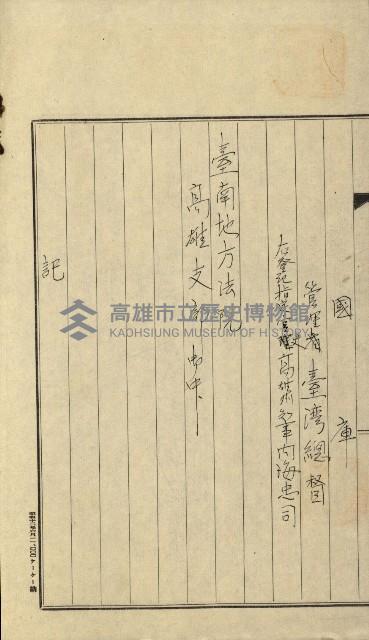 國庫
管理者 臺灣總督
右登記指定官吏高雄州知事內海忠司
臺南地方法院
高雄支部 御中
記
高雄市立歷史博物館
KAOHSIUNG MUSEUM OF HISTORY